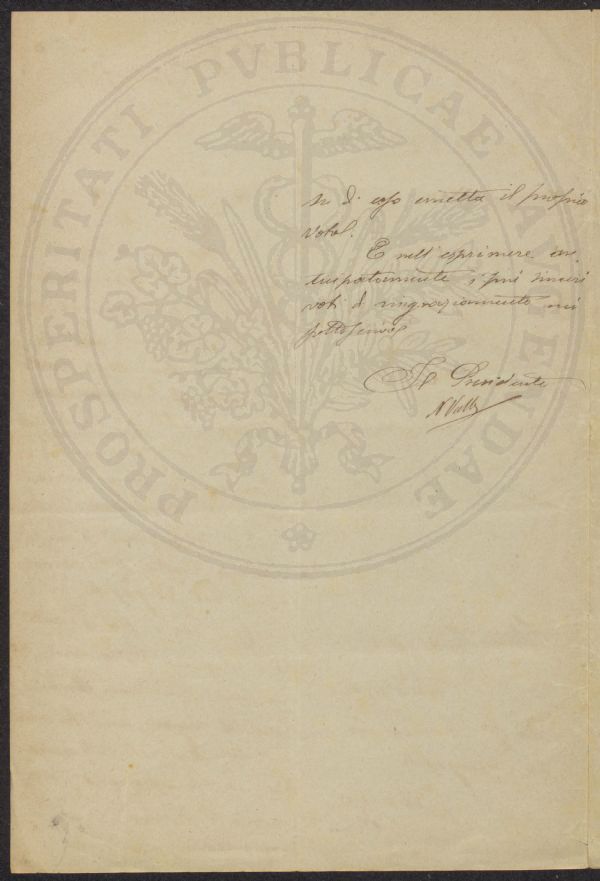 PROSPERITATI PVBLICAE AVGENDAE
emetta il proprio
voto.
E nell'esprimere an-
ticipatamente i più sinceri
voti di ringraziamento mi
sottoscrivo
Il Presidente
N Valle